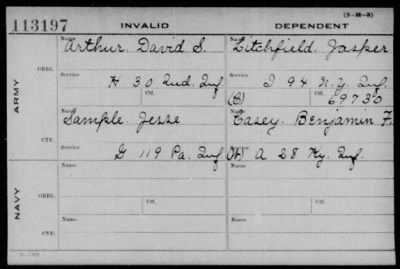 (3-H-3)
113197 INVALID DEPENDENT
Name Arthur. David S. Name Litchfield. Jasper
ORIG.
Service H 30 Ind. Inf Service I 94 N.Y. Inf.
Ctf. (B) Ctf. 69730
ARMY
Name Sample. Jesse Name Casey. Benjamin F.
CTF.
Service G 119 Pa. Inf Service A 28 Ky. Inf.
NAVY
Name Name
ORIG.
Service Ctf. Service Ctf.
Name Name
CTF.
Service Service